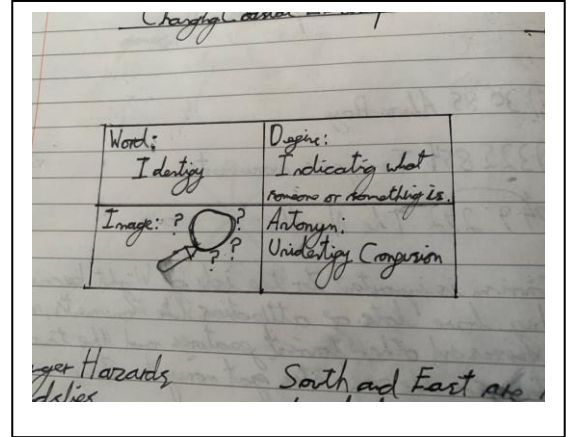 Changing Coastal
Word:
Identify
Define:
Indicating what
someone or something is.
Image: ? ? ? ? ?
Antonym:
Unidentify Confusion
Hazards
South and East are